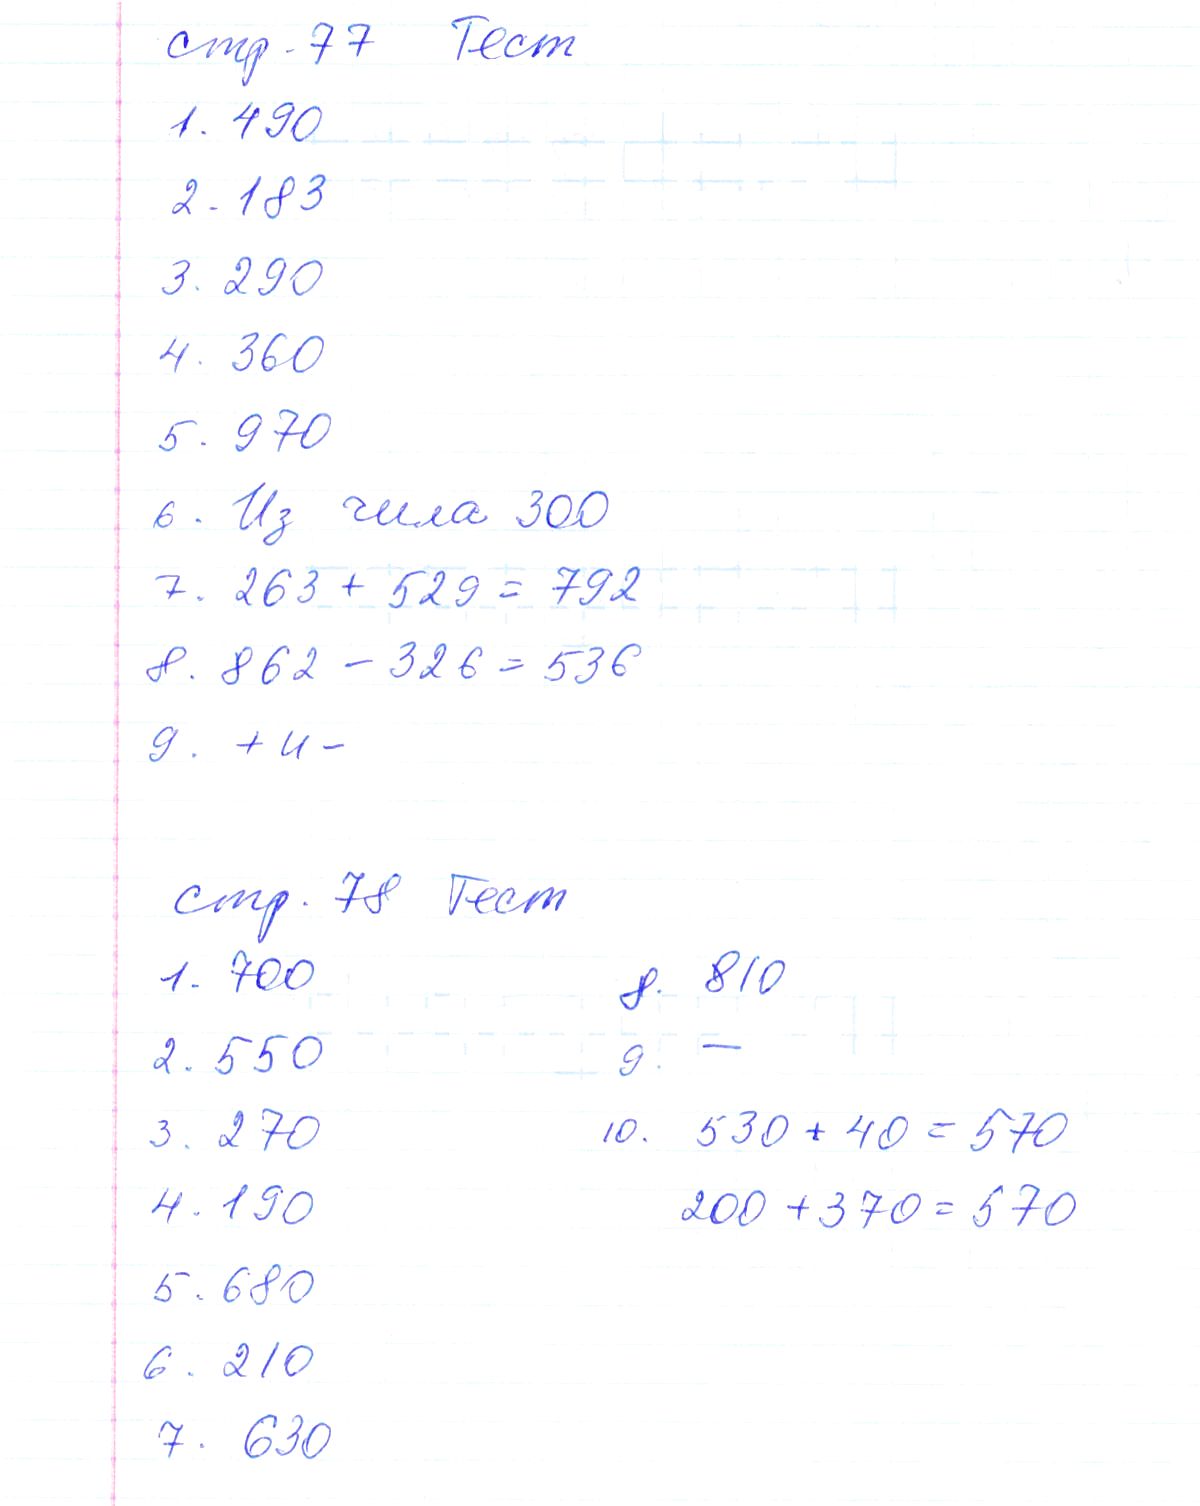 стр. 77 Тест
1. 490
2. 183
3. 290
4. 360
5. 970
6. Из чила 300
7. 263 + 529 = 792
8. 862 - 326 = 536
9. + и -
стр. 78 Тест
1. 700
2. 550
3. 270
4. 190
5. 680
6. 210
7. 630
8. 810
9. —
10. 530 + 40 = 570
200 + 370 = 570